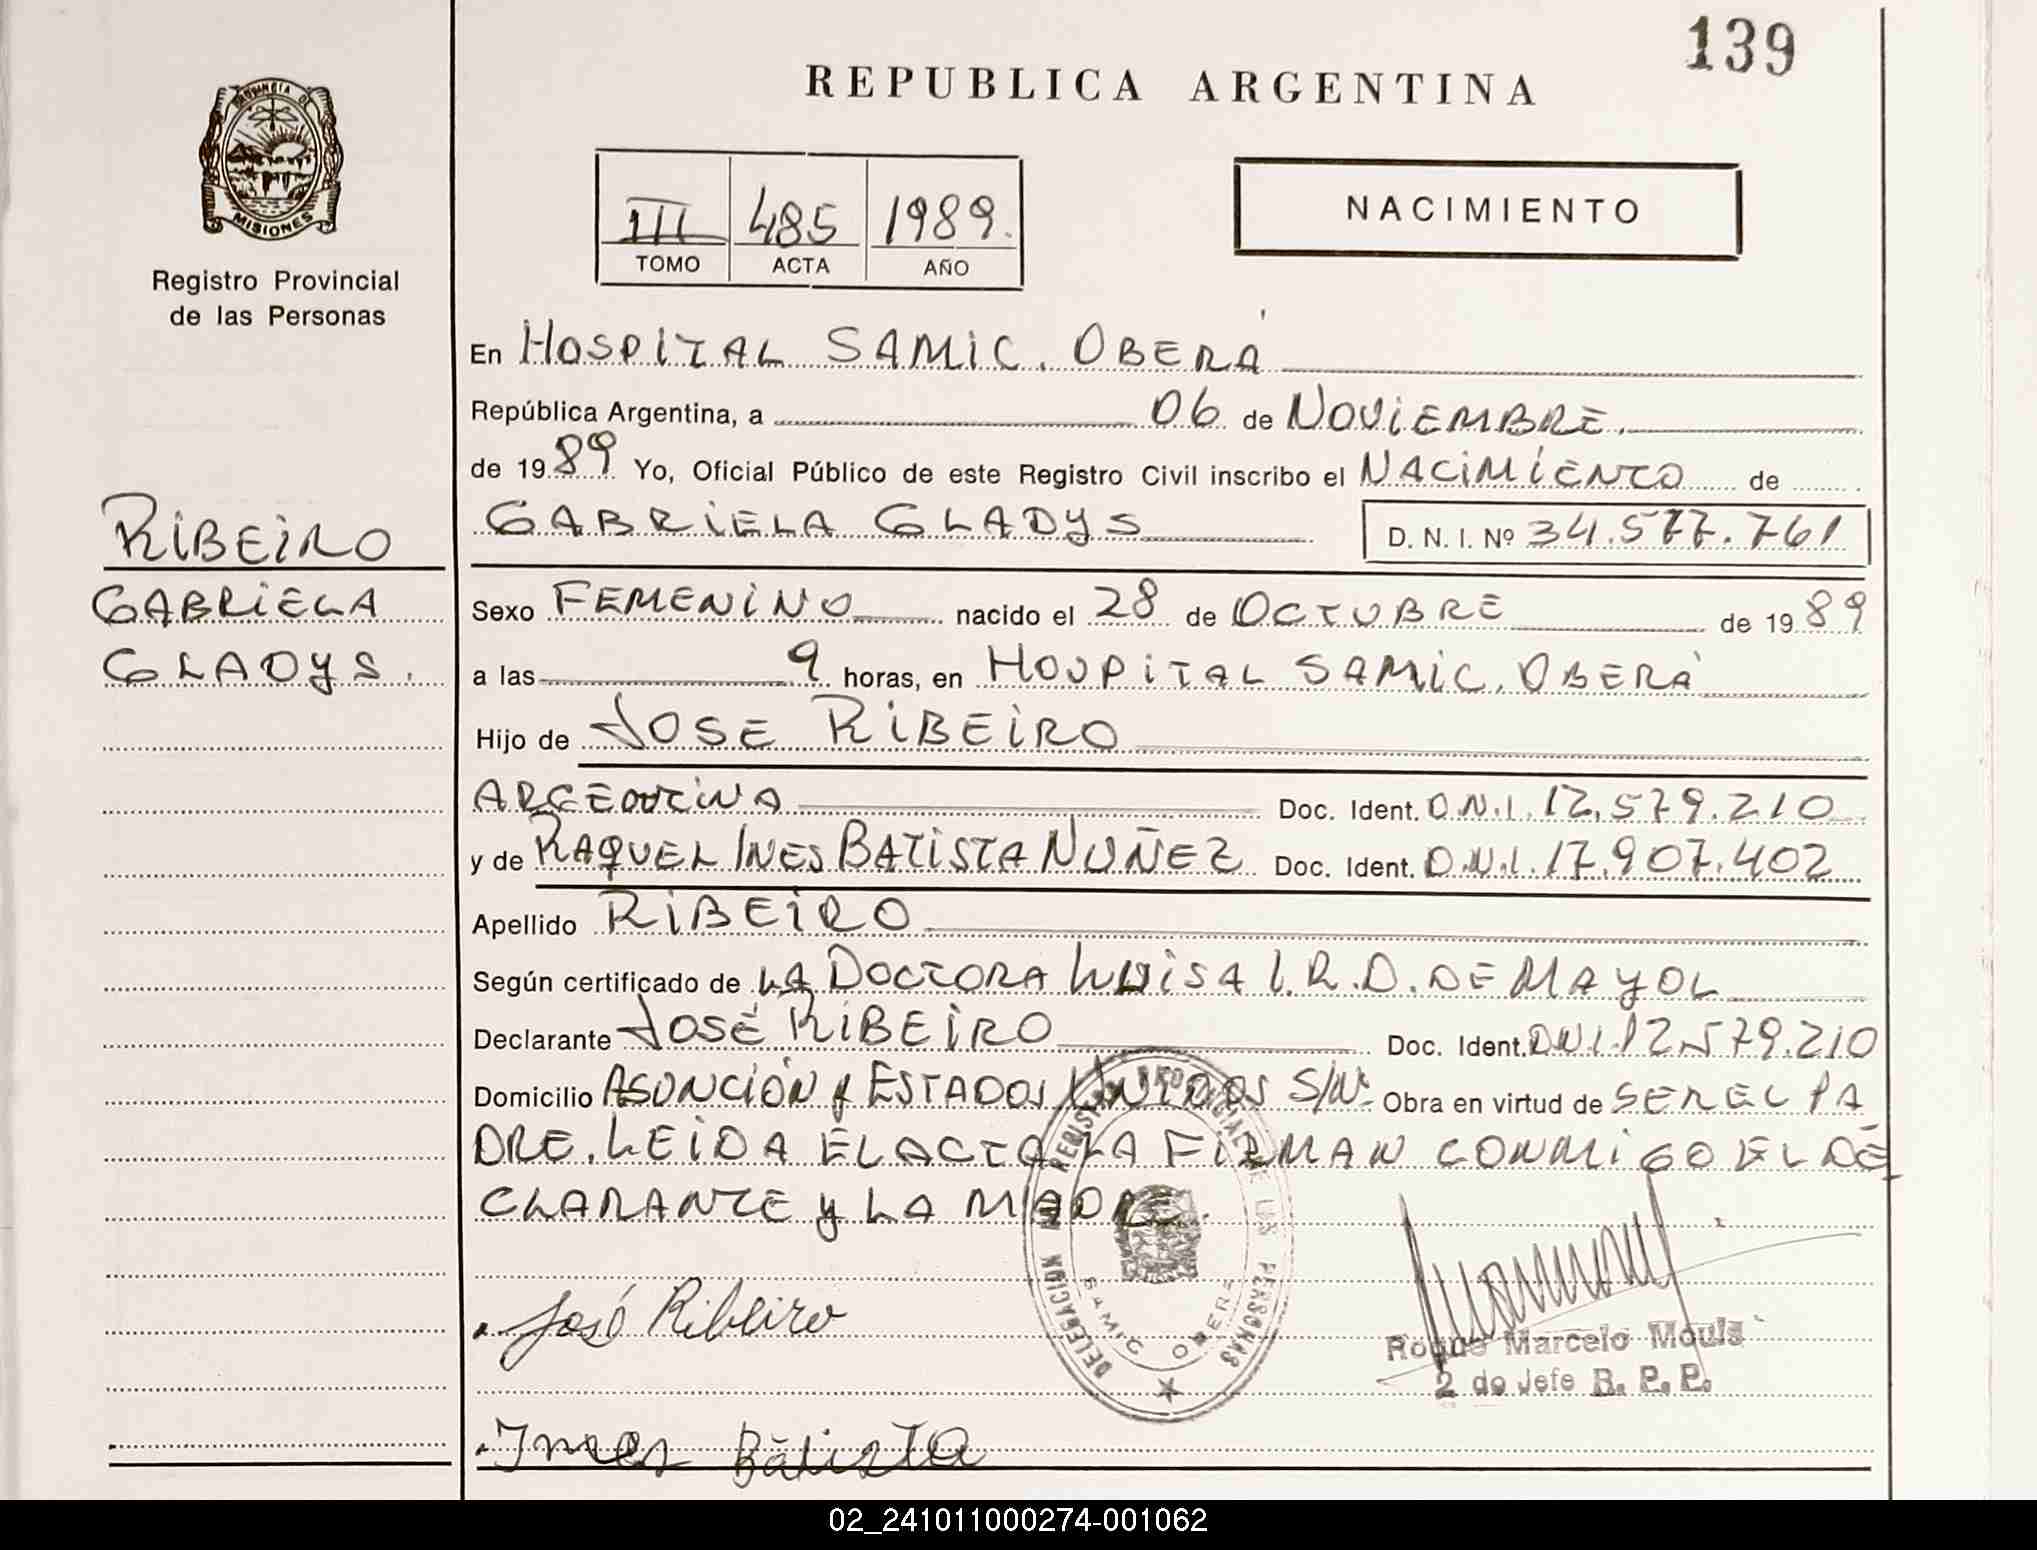 139
REPUBLICA ARGENTINA
PROVINCIA DE
MISIONES
Registro Provincial
de las Personas
III 485 1989.
TOMO ACTA AÑO
NACIMIENTO
En HOSPITAL SAMIC. OBERÁ
República Argentina, a 06 de NOVIEMBRE.
de 1989 Yo, Oficial Público de este Registro Civil inscribo el NACIMIENTO de
GABRIELA GLADYS D. N. I. Nº 34.577.761
RIBEIRO
GABRIELA
GLADYS.
Sexo FEMENINO nacido el 28 de OCTUBRE de 1989
a las 9 horas, en HOSPITAL SAMIC. OBERÁ
Hijo de JOSE RIBEIRO
ARGENTINA Doc. Ident. D.N.I. 12.579.210
y de RAQUEL INES BATISTA NUÑEZ Doc. Ident. D.N.I. 17.907.402
Apellido RIBEIRO
Según certificado de LA DOCTORA LUISA I. R. D. DE MAYOL
Declarante JOSÉ RIBEIRO Doc. Ident. D.N.I. 12.579.210
Domicilio ASUNCIÓN y ESTADOS UNIDOS S/Nº Obra en virtud de SER EL PA
DRE. LEIDA EL ACTA LA FIRMAN CONMIGO EL DE
CLARANTE y LA MADRE.
DELEGACION REGISTRO PROVINCIAL DE LAS PERSONAS
SAMIC OBERA
José Ribeiro
Roque Marcelo Mouls
2 do Jefe R. P. P.
Ines Batista
02_241011000274-001062